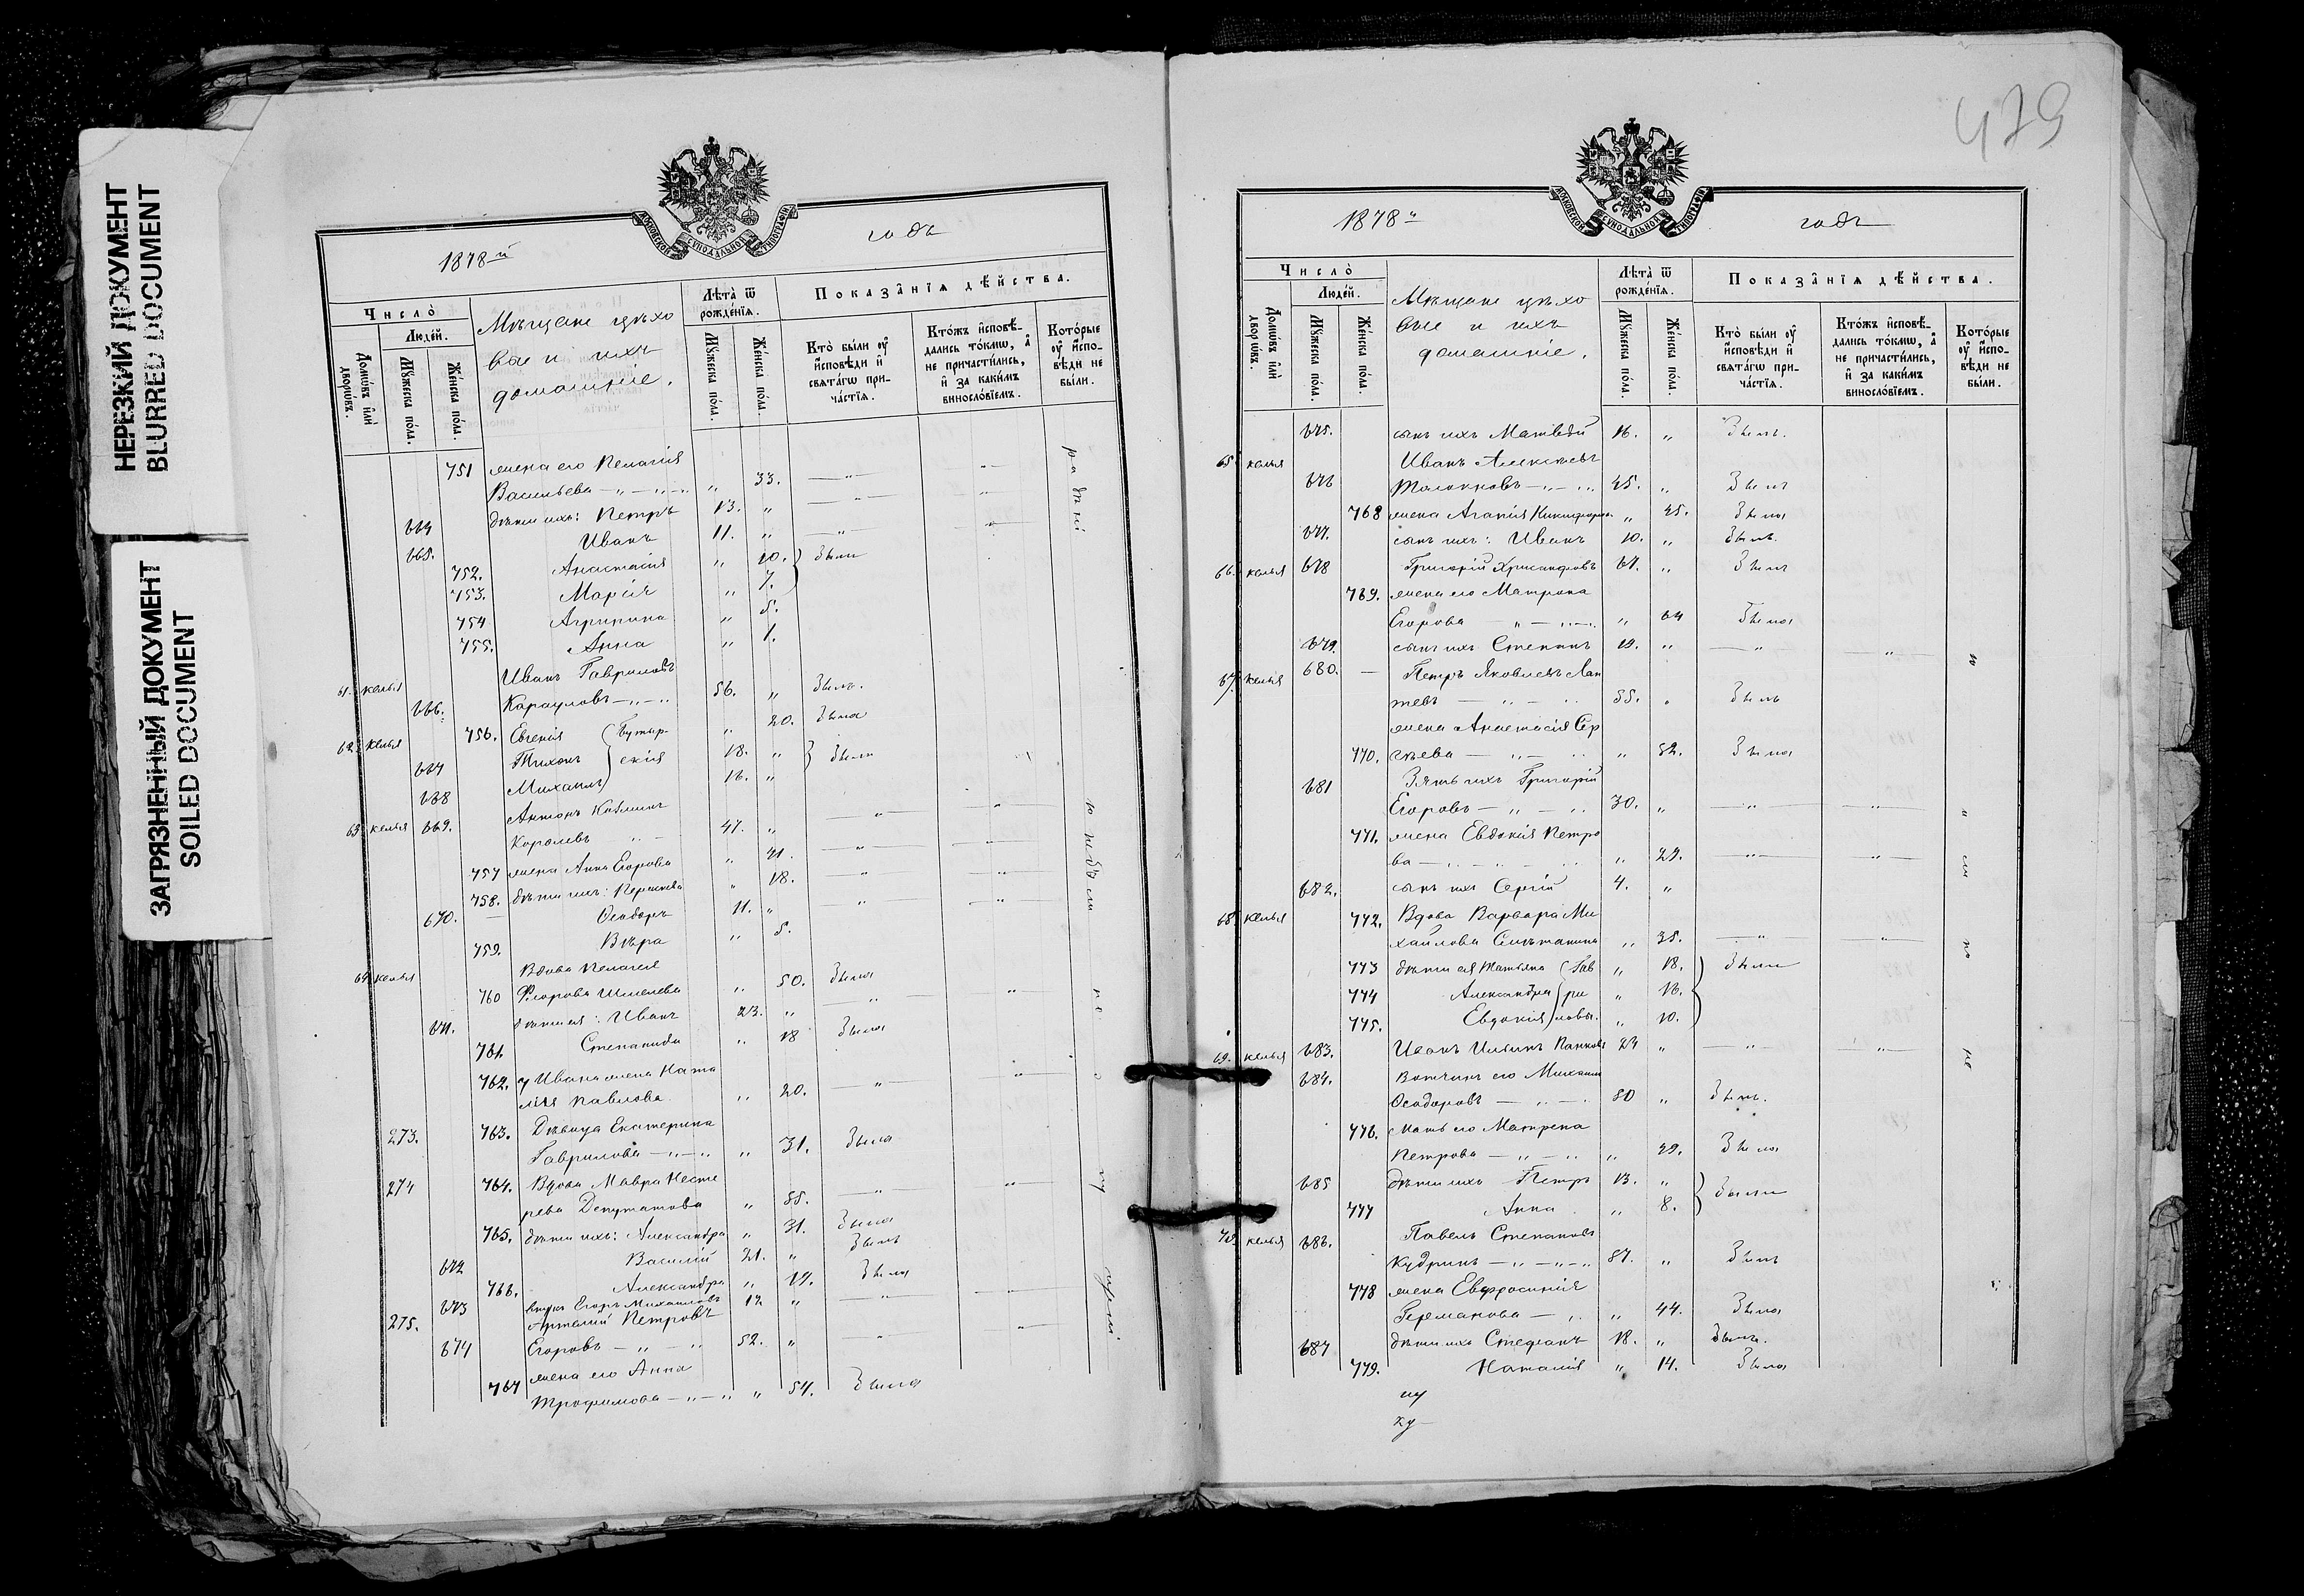 НЕРЕЗКИЙ ДОКУМЕНТ
BLURRED DOCUMENT
ЗАГРЯЗНЕННЫЙ ДОКУМЕНТ
SOILED DOCUMENT
МОСКОВСКОЙ СѴНОДАЛЬНОЙ ТИПОГРАФІИ
1878й годъ
Число̀
Люде́й.
Домѡ́въ и҆лѝ дворѡ́въ.
Мꙋ́жеска по́ла.
Же́нска по́ла.
Мѣщане цѣхо
вые и ихъ
домашніе.
Лѣ́та ѿ рожде́нїѧ.
Мꙋ́жеска по́ла.
Же́нска по́ла.
Показа̑нїѧ дѣ́йства.
Кто̀ бы́ли ᲂу҆ и҆сповѣди и҆ свѧта́гѡ прича́стїѧ.
Кто́жъ и҆сповѣ́дались то́кмѡ, а҆ не причасти́лись, и҆ за каки́мъ винослові́емъ.
Кото́рые ᲂу҆ и҆сповѣди не бы́ли.
751 жена его Пелагія
Васильева „ 33.
664 дѣти ихъ: Петръ 13. „
665. Иванъ 11. „
752. Анастасія „ 10. } Были
753. Марія „ 7.
754 Агрипина „ 5.
755. Анна „ 1.
61. келья Иванъ Гавриловъ
666. Карауловъ 56. „ Былъ.
62. келья 756. Евгенія (Бутыр- „ 20. Была
667 Тихонъ скія 18. „ } Были
668 Михаилъ 16. „
63. келья 669. Антонъ Козминъ
Королевъ 47. „
757 жена Анна Егорова „ 41.
758. дѣти ихъ: Перасковья „ 18.
670. Ѳеодоръ 11. „
759. Вѣра „ 5.
64. келья Вдова Пелагея
760 Флорова Шмелева „ 50. Была
671. дѣти ея: Иванъ 23. „
761. Степанида „ 18 Была
762. у Ивана жена Ната
лія Павлова „ 20.
273. 763. Дѣвица Екатерина
Гаврилова „ 31. Была
274 764. Вдова Мавра Несте
рева Депутатова „ 55.
765. дѣти ихъ: Александра „ 31. Была
672 Василій 21. „ Былъ
766. Александра „ 17. Была
673 внукъ Егоръ Михайловъ 12 „
275. Артемій Петровъ
674 Егоровъ 52. „
767 жена его Анна
Трофимова „ 54. Была
479
МОСКОВСКОЙ СѴНОДАЛЬНОЙ ТИПОГРАФІИ
1878й годъ
Число̀
Люде́й.
Домѡ́въ и҆лѝ дворѡ́въ.
Мꙋ́жеска по́ла.
Же́нска по́ла.
Мѣщане цѣхо
вые и ихъ
домашніе.
Лѣ́та ѿ рожде́нїѧ.
Мꙋ́жеска по́ла.
Же́нска по́ла.
Показа̑нїѧ дѣ́йства.
Кто̀ бы́ли ᲂу҆ и҆сповѣди и҆ свѧта́гѡ прича́стїѧ.
Кто́жъ и҆сповѣ́дались то́кмѡ, а҆ не причасти́лись, и҆ за каки́мъ винослові́емъ.
Кото́рые ᲂу҆ и҆сповѣди не бы́ли.
675. сынъ ихъ Матвѣй 16. „ Былъ.
65. келья Иванъ Алексѣевъ
676 45. „ Былъ
768 жена Агапія Никифорова „ 45. Была
677. сынъ ихъ: Иванъ 10. „ Былъ.
66. келья 678 Григорій Хрисанфовъ 67. „ Былъ
769. жена его Матрона
Егорова „ 64 Была
679. сынъ ихъ Степанъ 19. „
67. келья 680. Петръ Яковлевъ Лап
тевъ 55. „ Былъ
жена Анастасія Сер
770. гѣева „ 52. Была
681 Зять ихъ Григорій
Егоровъ 30. „
771. жена Евдокія Петро
ва „ 29.
682. сынъ ихъ Сергій 4. „
68. келья 772. Вдова Варвара Ми
хайлова Сметанина „ 35.
773 дѣти ея Татьяна (Гав „ 18. } Были
774 Александра ри „ 16.
775. Евдокія ловы. „ 10.
69. келья 683. Иванъ Ильинъ Панковъ 24 „
684. Вотчимъ его Михаилъ
Ѳеодоровъ 50 „ Былъ.
776. мать его Матрена
Петрова „ 49. Была
685 дѣти ихъ Петръ 13. „ } Были
777 Анна „ 8.
70. келья 686. Павелъ Степановъ
Кудринъ 57. „ Былъ
778 жена Евфросинія
Германова „ 44. Была
687 дѣти ихъ Стефанъ 18. „ Былъ.
779. Наталія „ 14. Была